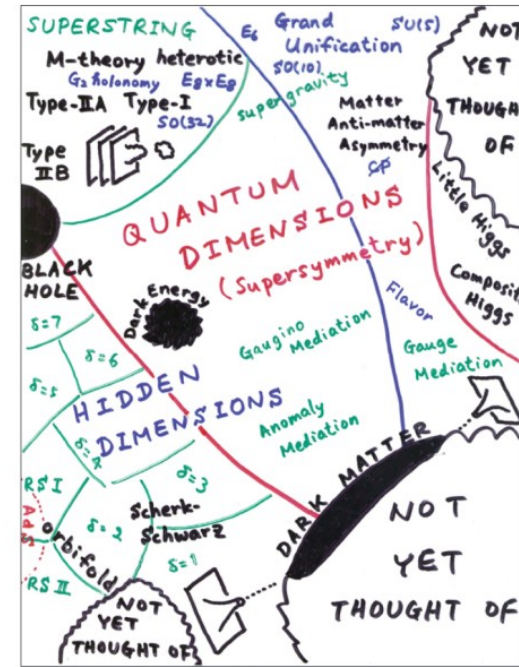 SUPERSTRING
M-theory heterotic
G₂ holonomy E₈xE₈
Type-IIA Type-I
SO(32)
Type
IIB
E₆ Grand
Unification
SU(5)
SO(10)
supergravity
Matter
Anti-matter
Asymmetry
CP
NOT
YET
THOUGH
OF
Little Higgs
Composite
Higgs
QUANTUM
DIMENSIONS
(Supersymmetry)
BLACK
HOLE
Dark Energy
Flavor
Gaugino
Mediation
Gauge
Mediation
Anomaly
Mediation
δ=7
δ=6
δ=5
HIDDEN
DIMENSIONS
δ=4
δ=3
RS I
AdS
δ=2
Scherk-
Schwarz
orbifold
RS II
δ=1
DARK MATTER
NOT
YET
THOUGHT OF
NOT
YET
THOUGHT OF